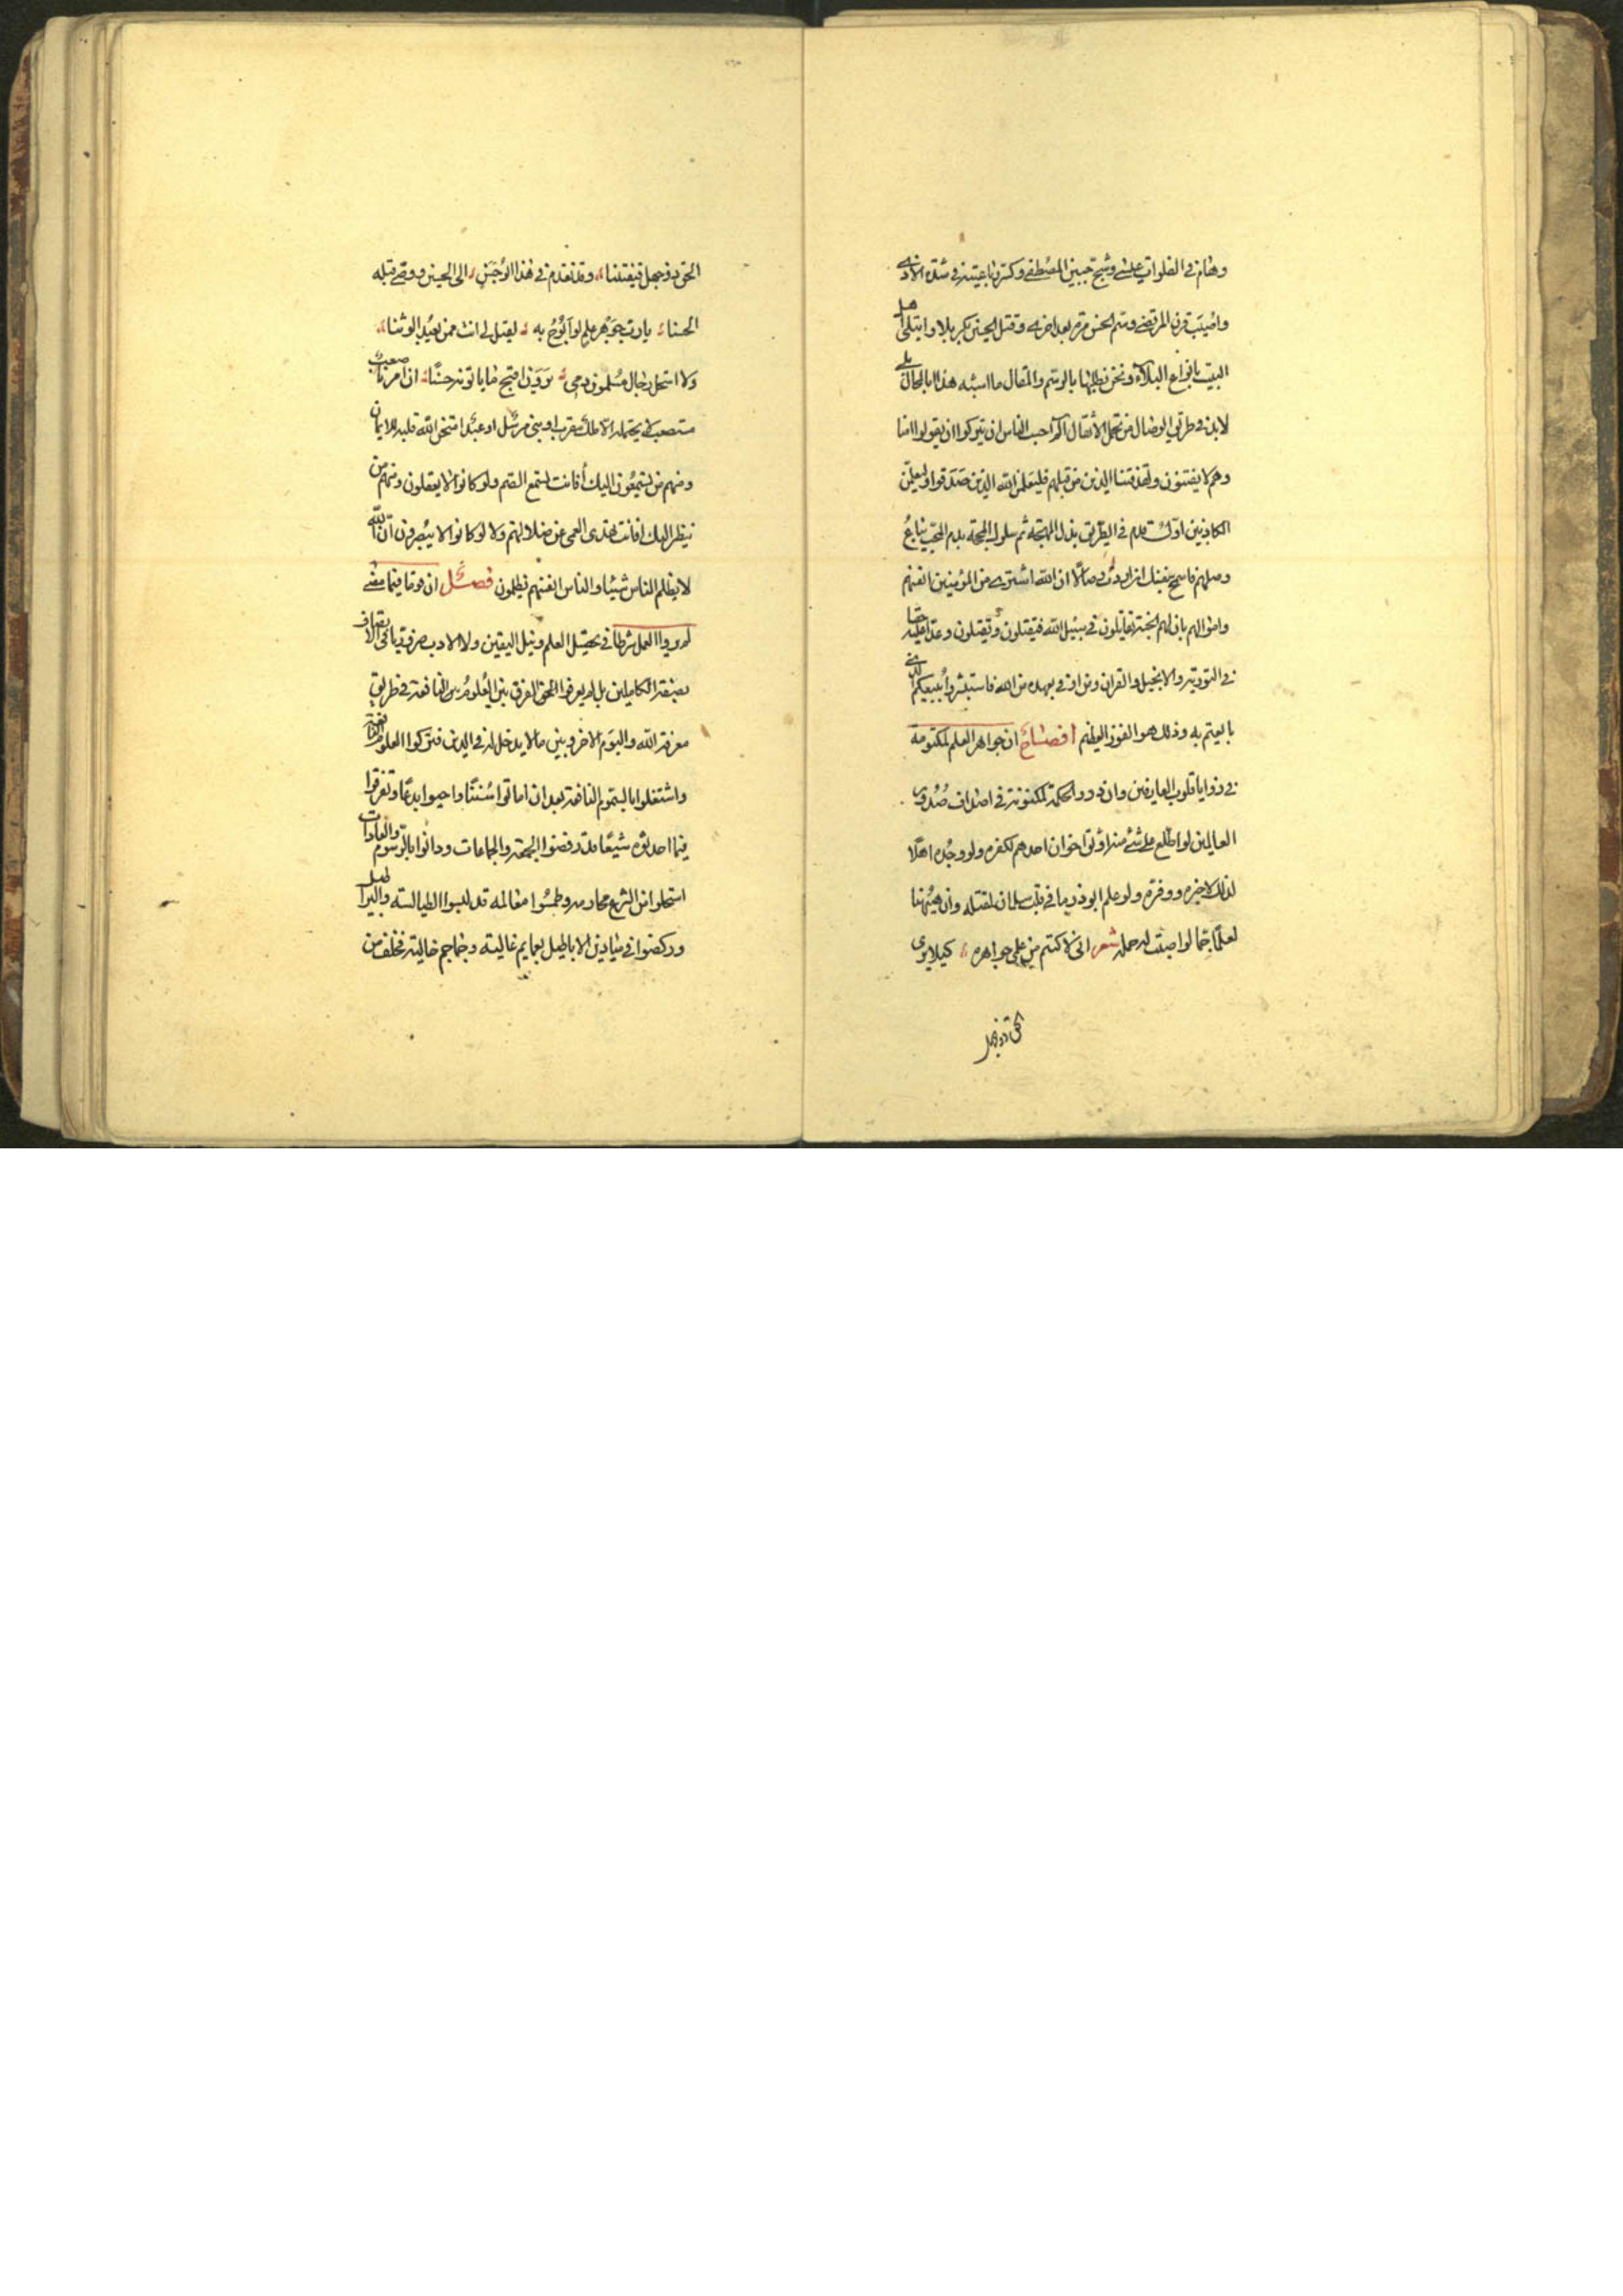 وهام في الفلوات عيسى وشج جبين المصطفى وكسرت رباعيته في شدة الاذى
واصيب قرن المرتضى وسم الحسن مرة بعد اخرى وقتل الحسين بكربلا وابتلى اهل
البيت بانواع البلاء ونحن نطلبها بالرسم والمقال ما اشبه هذا بالمحال بلى
لابد في طريق الوصال من تحمل الاثقال الم احسب الناس ان يتركوا ان يقولوا امنا
وهم لا يفتنون ولقد فتنا الذين من قبلهم فليعلمن الله الذين صدقوا وليعلمن
الكاذبين اول قدم في الطريق بذل المهجة ثم سلوك المحجة بدم المحب يباع
وصلهم فاسمح بنفسك ان اردت وصالا ان الله اشترى من المؤمنين انفسهم
واموالهم بان لهم الجنة يقاتلون في سبيل الله فيقتلون ويقتلون وعدا عليه حقا
في التورية والانجيل والقران ومن اوفى بعهده من الله فاستبشروا ببيعكم الذي
بايعتم به وذلك هو الفوز العظيم افصاح ان جواهر العلم المكتومة
في زوايا قلوب العارفين وان درر الحكمة المكنونة في اصداف صدور
العالمين لو اطلع على شئ منه اوثق اخوان احدهم لكفره ولو وجد اهلا
لذلك لاخبره ووفره ولو علم ابوذر ما في قلب سلمان لقتله وان هيهنا
لعلما جما لو اصبت له حملة شعر انى لاكتم من علمي جواهره كيلا يرى
الحق ذو جهل
الحق ذو جهل فيفتننا وقد تقدم في هذا ابو حسن الى الحسين ووصى قبله
الحسنا يا رب جوهر علم لو ابوح به لقيل لي انت ممن يعبد الوثنا
ولا استحل رجال مسلمون دمي يرون اقبح ما ياتونه حسنا ان امرنا صعب
مستصعب لا يحتمله الا ملك مقرب او نبى مرسل او عبد امتحن الله قلبه للايمان
ومنهم من يستمعون اليك أفانت تسمع الصم ولو كانوا لا يعقلون ومنهم من
ينظر اليك افانت تهدى العمى عن ضلالتهم ولو كانوا لا يبصرون ان الله
لا يظلم الناس شيئا والناس انفسهم يظلمون فصل ان قوما فيما مضى
لم يروا العمل شرطا في تحصيل العلم ونيل اليقين ولا الادب
بصفة الكاملين بل لم يعرفوا الفرق بين العلوم النافعة في طريق
معرفة الله واليوم الاخر وبين ما لا يدخل له في الدين فتركوا العلوم النافعة
واشتغلوا بالسموم الناقعة بعد ان اماتوا سننا واحيوا بدعا وتفرقوا
فيما احدثوه شيعا قد رفضوا الجمعة والجماعات ودانوا بالرسوم والعادات
استحلوا من الشرع محارمه وطمسوا معالمه قد لبسوا الطيالسة والبراطيل
وركضوا في ميادين الاباطيل بعمايم غالية وجماجم خالية فخلف من